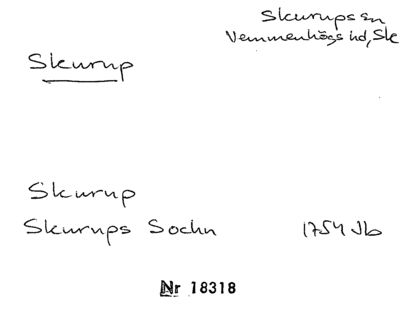 Skurups sn
Vemmenhögs hd, Sk
Skurup
Skurup
Skurups Sochn 1754 Jb
Nr 18318